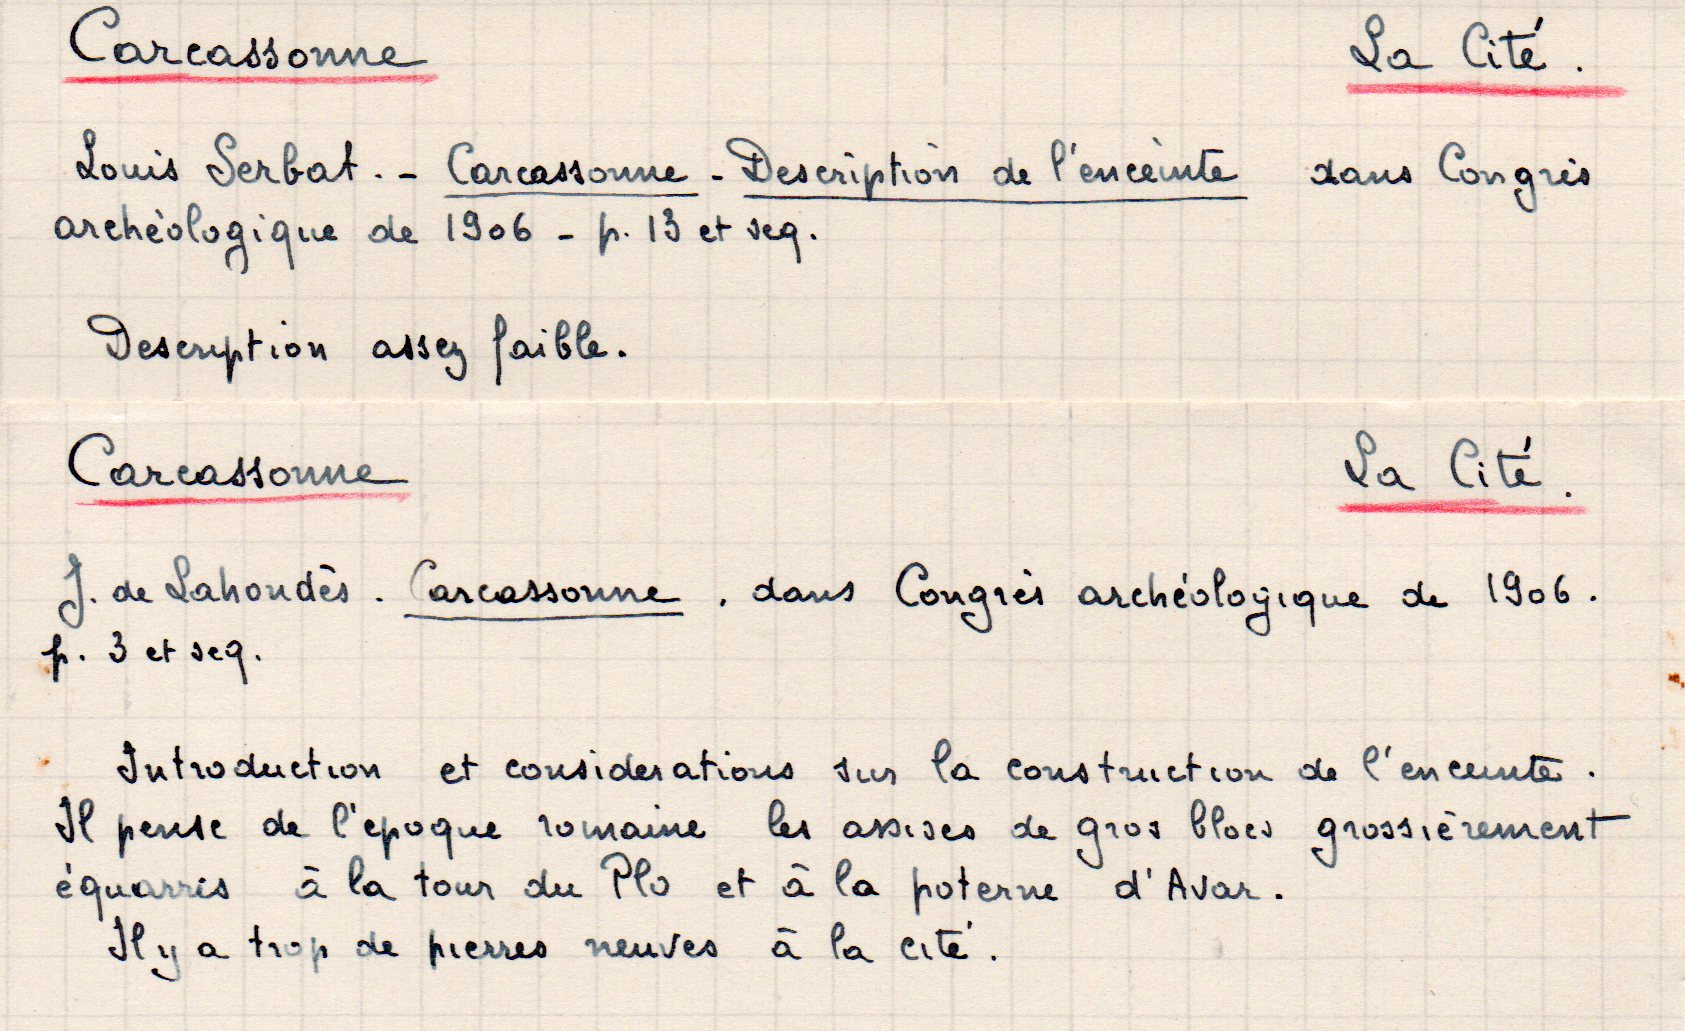 Carcassonne La Cité.
Louis Serbat. - Carcassonne - Description de l'enceinte dans Congrès
archéologique de 1906 - p. 13 et seq.
Description assez faible.
Carcassonne La Cité.
J. de Lahondès. Carcassonne, dans Congrès archéologique de 1906.
p. 3 et seq.
Introduction et considerations sur la construction de l'enceinte.
Il pense de l'epoque romaine les assises de gros blocs grossièrement
équarris à la tour du Plo et à la poterne d'Avar.
Il y a trop de pierres neuves à la cité.